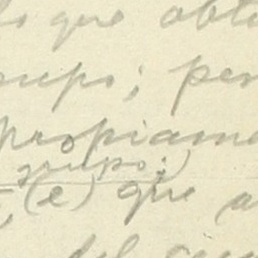 que obt
grupo; per
propiame
grupo;)
(e) que a
del